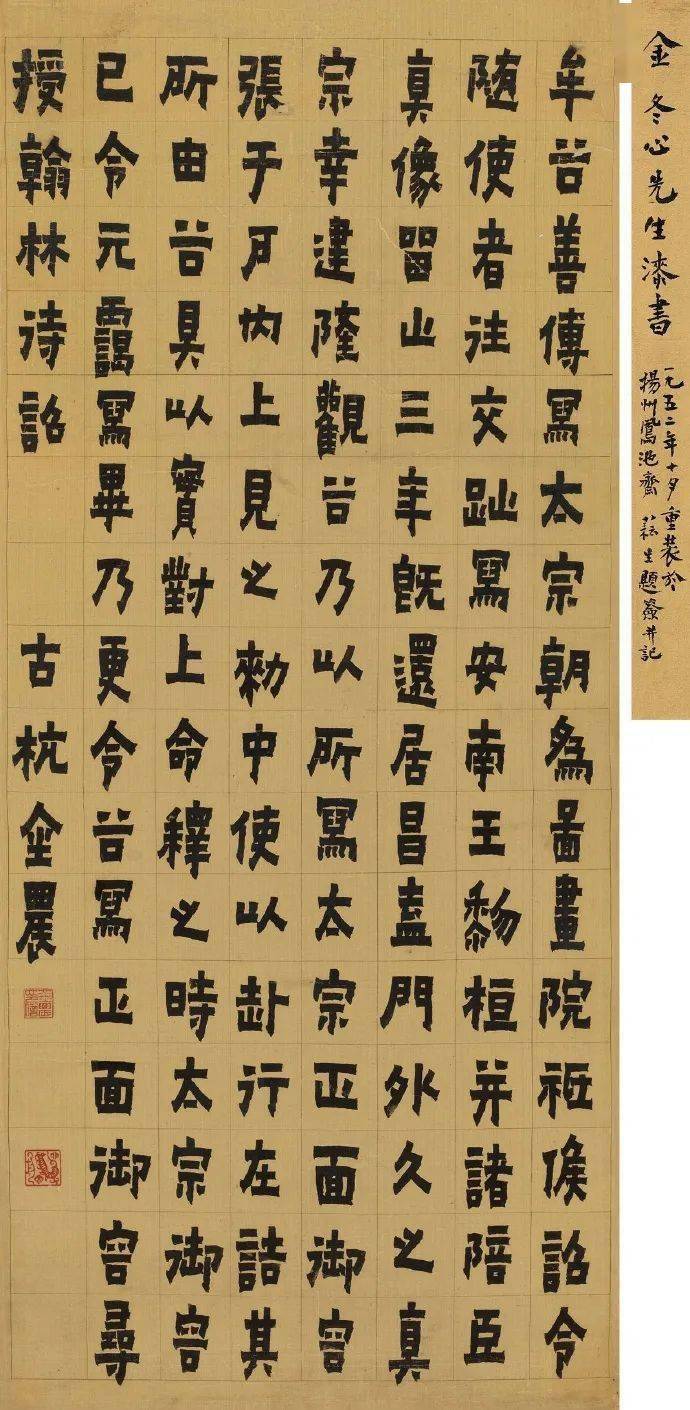 金冬心先生漆書
一九五二年十月重裝於
揚州鳳池齋 耘生題簽并記
牟谷善傳寫太宗朝為圖畫院祗候詔令
随使者往交趾寫安南王黎桓并諸陪臣
真像留止三年既還居昌盍門外久之真
宗幸建隆觀谷乃以所寫太宗正面御容
張于戶内上見之勑中使以赴行在詰其
所由谷具以實對上命釋之時太宗御容
已令元靄寫畢乃更令谷寫正面御容尋
授翰林待詔 古杭金農